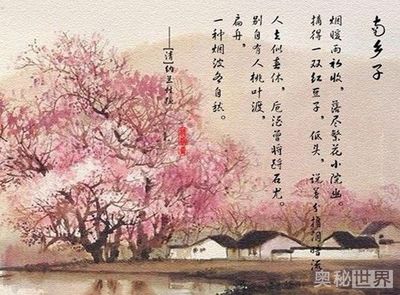 南乡子
烟暖雨初收，落尽繁花小院幽。
摘得一双红豆子，低头，说着分携泪暗流
人去似春休，卮酒曾将酹石尤。
别自有人桃叶渡，
扁舟，
一种烟波各自愁。
——[清]纳兰性德
奥秘世界